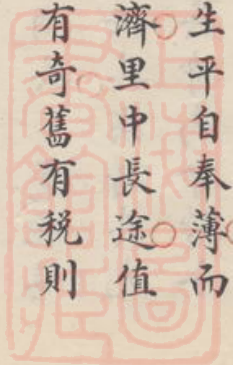 生平自奉薄而
濟里中長途值
有奇舊有税則